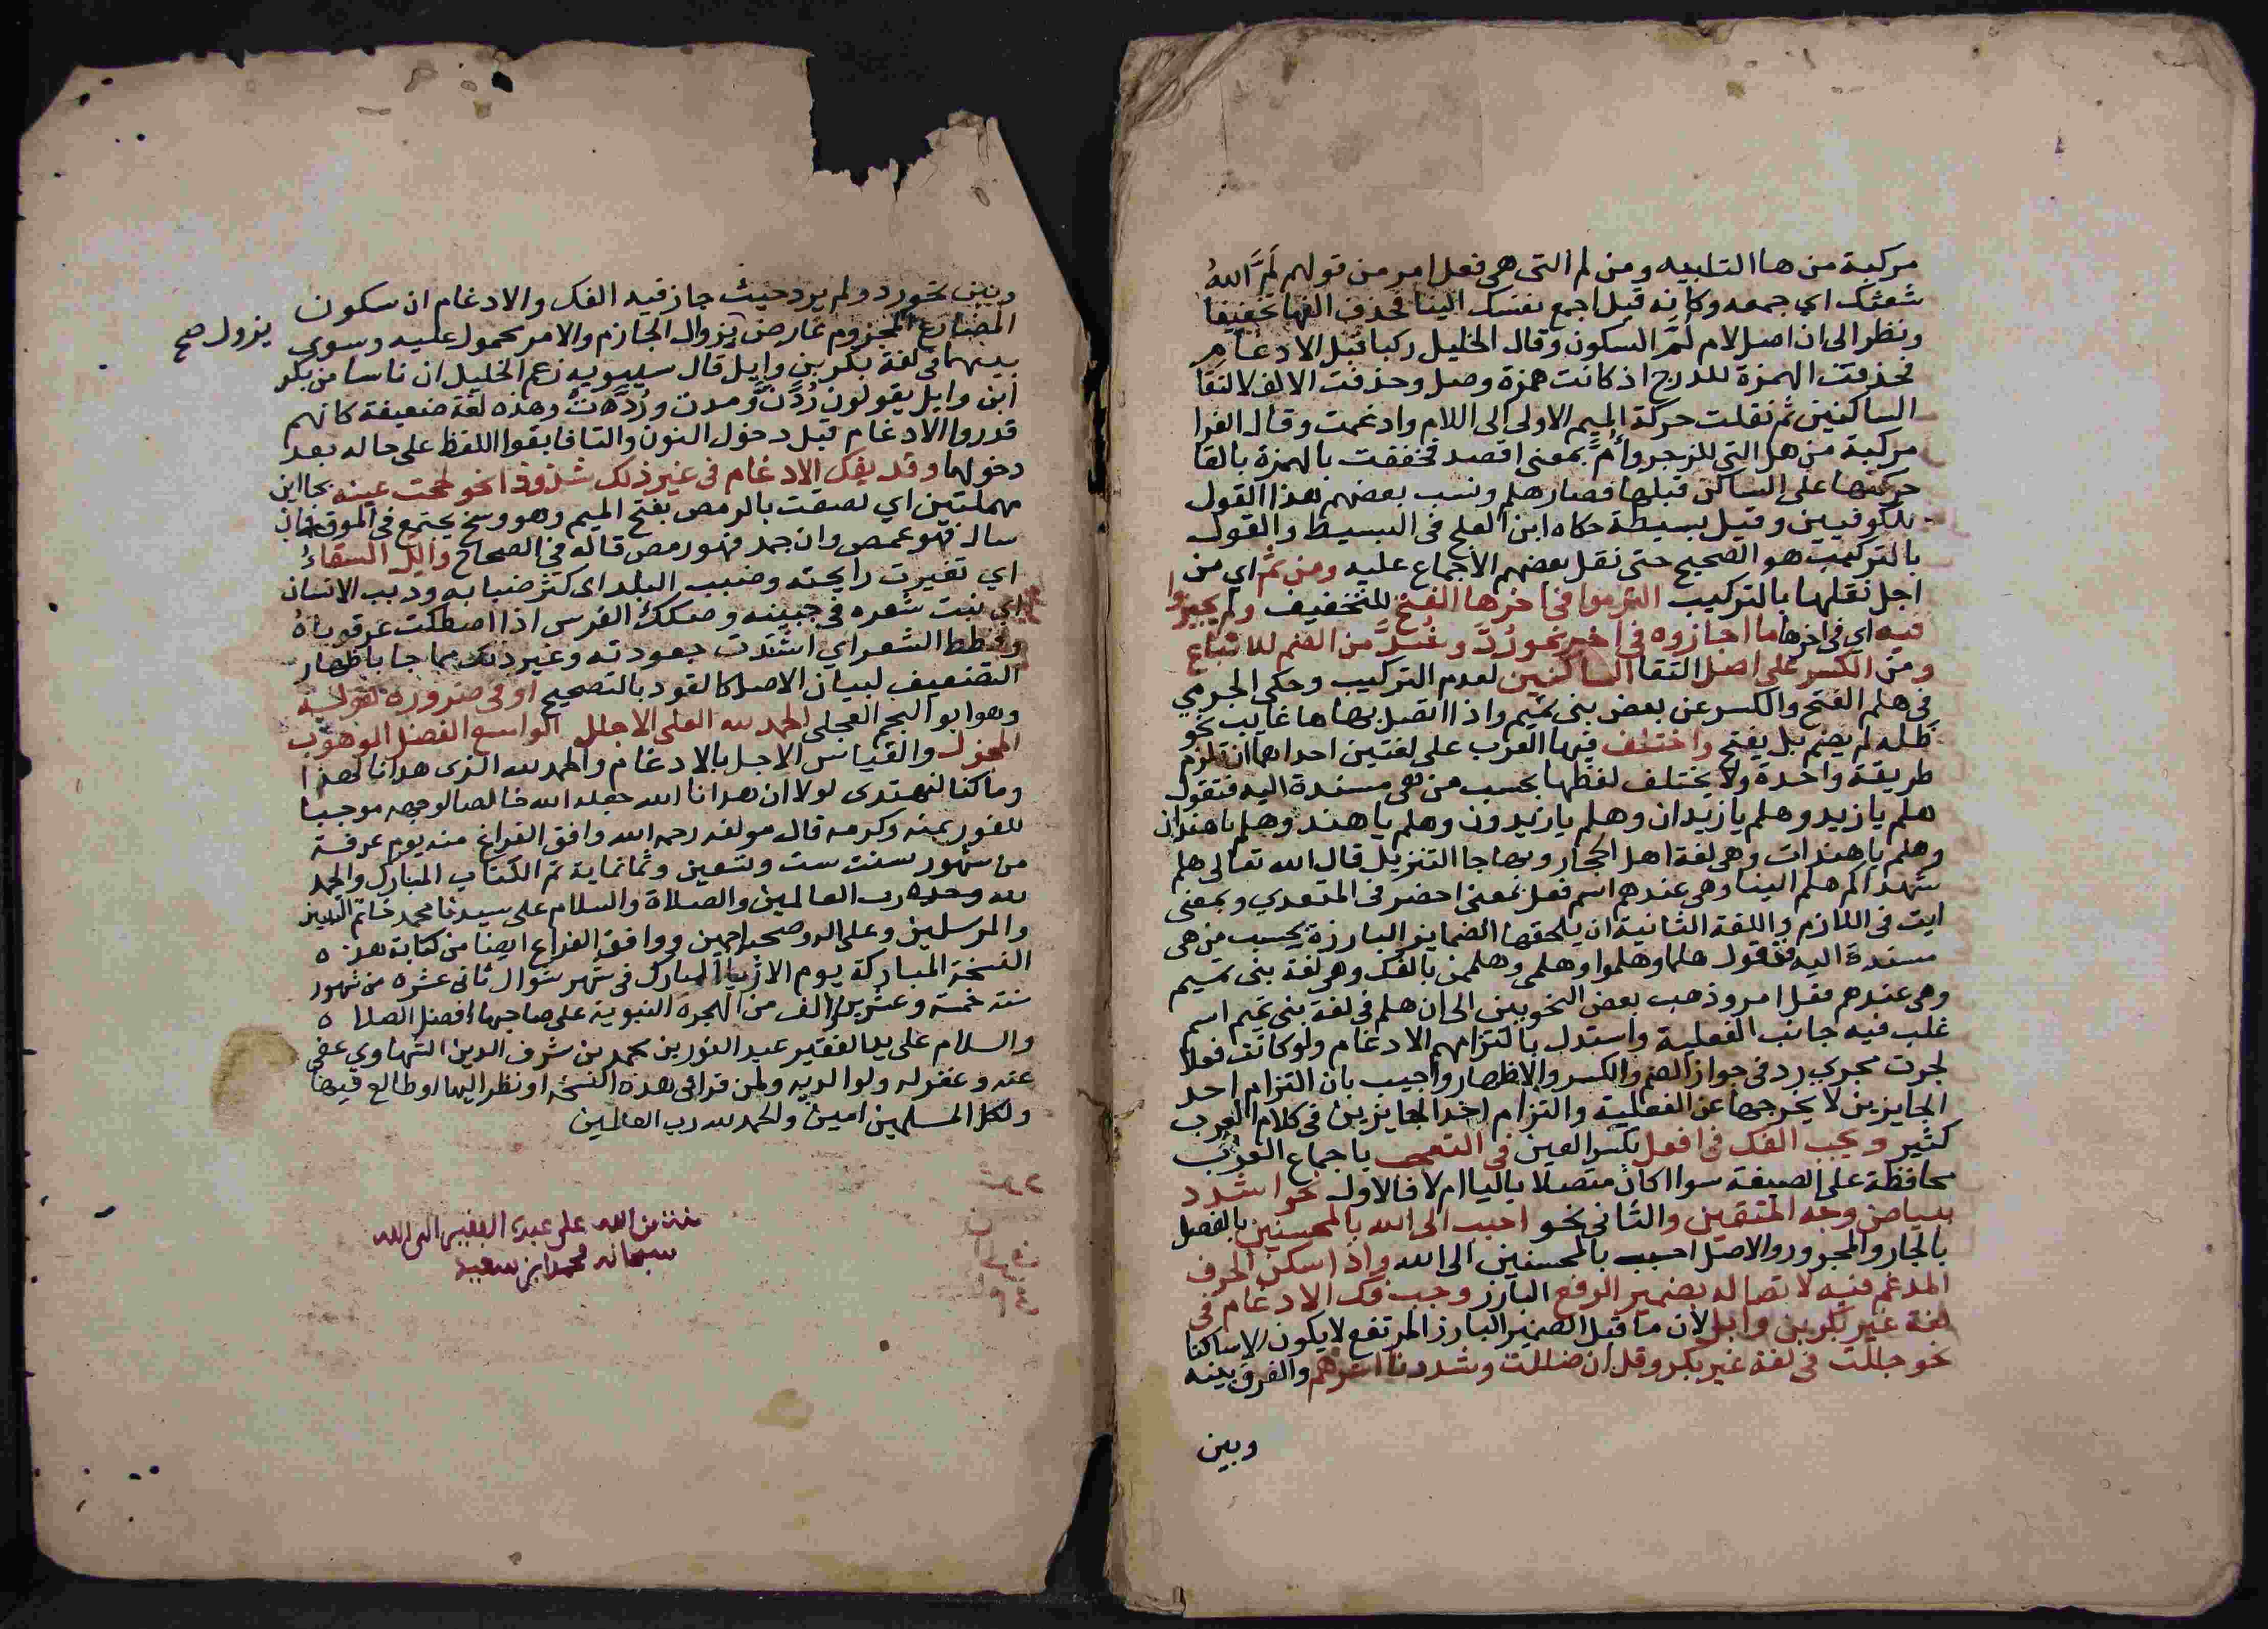 مركبة من ها التنبيه ومن لم التى هى فعل امر من قولهم لَمَّ اللهُ
شعثك اي جمعه وكانه قيل اجمع نفسك الينا فحذف الفها تخفيفا
ونظر الى ان اصل لام لُمّ السكون وقال الخليل ركبا قبل الادغام
فحذفت الهمزة للدرج اذ كانت همزة وصل وحذفت الالف لالتقا
الساكنين ثم نقلت حركة الميم الاولى الى اللام وادغمت وقال الفرا
مركبة من هل التي للزجر وأُمَّ بمعنى اقصد فخففت بالهمزة بالقا
حركتها على الساكن قبلها فصار هلم ونسب بعضهم هذا القول
للكوفيين وقيل بسيطة حكاه ابن العلج فى البسيط والقول
بالتركيب هو الصحيح حتى نقل بعضهم الاجماع عليه ومن ثم اي من
اجل نقلها بالتركيب التزموا في اخرها الفتح للتخفيف ولم يجيزوا
فيه اي فى اخرها ما اجازوه فى اخر نحو رُدَّ وشُدَّ من الضم للاتباع
ومن الكسر على اصل التقا الساكنين لعدم التركيب وحكى الجرمي
فى هلم الفتح والكسر عن بعض بنى تميم واذا اتصل بها ها غايب نحو
هَلمه لم يضم بل يفتح واختلف فيها العرب على لغتين احداهما ان تلزم
طريقة واحدة ولا يختلف لفظها بحسب من هى مسندة اليه فتقول
هلم يا زيد وهلم يا زيدان وهلم يا زيدون وهلم يا هند وهلم يا هندان
وهلم يا هندات وهى لغة اهل الحجاز وبها جا التنزيل قال الله تعالى هلم
شهداكم هلم الينا وهى عندهم اسم فعل بمعنى احضر فى المتعدي وبمعنى
ايت فى اللازم واللغة الثانية ان يلحقها الضماير البارزة بحسب من هى
مسندة اليه فتقول هلما وهلموا وهلمى وهلممن بالفك وهى لغة بنى تميم
وهى عندهم فعل امر وذهب بعض النحويين الى ان هلم فى لغة بنى تميم اسم
غلب فيه جانب الفعلية واستدل بالتزامهم الادغام ولو كانت فعلا
لجرت مجري رد فى جواز الضم والكسر والاظهار وأجيب بان التزام احد
الجايزين لا يخرجها عن الفعلية والتزام احد الجايزين فى كلام العرب
كثير ويجب الفك فى افعل بكسر العين فى التعجب باجماع العرب
محافظة على الصيغة سوا اكان متصلا بالباام لا فالاول نحو اشدد
ببياض وجه المتقين والثانى نحو احبب الى الله بالمحسنين بالفصل
بالجار والمجرور والاصل احبب بالمحسنين الى الله واذا سكن الحرف
المدغم فيه لاتصاله بضمير الرفع البارز وجب فك الادغام فى
لغة غير بكر بن وايل لان ما قبل الضمير البارز المرتفع لا يكون الا ساكنا
نحو حللت فى لغة غير بكر وقل ان ضللت وشددنا اسرهم والفرق بينه
وبين
وبين نحو رد ولم يرد حيث جاز فيه الفك والادغام ان سكون
المضارع المجزوم عارض يزول الجازم والامر محمول عليه وسوي
يزول صح
بينهما فى لغة بكر بن وايل قال سيبويه زعم الخليل ان ناسا من بكر
ابن وايل يقولون رُدَّنَ ومدن ورُدَّتُ وهذه لغة ضعيفة كانهم
قدروا الادغام قبل دخول النون والتا فابقوا اللفظ على حاله بعد
دخولهما وقد يفك الادغام فى غير ذلك شذوذا نحو لححت عينه بحااين
مهملتين اي لصقت بالرمص بفتح الميم وهو وسخ يجتمع فى الموق فان
سال فهو غمص وان جمد فهو رمص قاله فى الصحاح والل السقاءُ
اي تغيرت رايحته وضبب البلد اى كثر ضبابه ودبب الانسان
اي نبت شعره فى جبينه وصكك الفرس اذا اصطكت عرقوباهُ
وقطط الشعر اي اشتدت جعودته وغير ذلك مما جا باظهار
التضعيف لبيان الاصل كالقود بالتصحيح او فى ضرورة كقوله
وهو ابو النجم العجلى الحمد لله العلى الاجلل الواسع الفضل الوهوب
المجزل والقياس الاجل بالادغام والحمد لله الذى هدانا لهذا
وما كنا لنهتدى لولا ان هدانا الله جعله الله خالصا لوجهه موجبا
للفوز بمنه وكرمه قال مولفه رحمه الله وافق الفراغ منه يوم عرفة
من شهور سنت ست وتسعين وثمانماية تم الكتاب المبارك والحمد
لله وحده رب العالمين والصلاة والسلام على سيدنا محمد خاتم النبيين
والمرسلين وعلى اله وصحبه اجمعين ووافق الفراغ ايضا من كتابة هذه
النسخة المباركة يوم الاربعا المبارك فى شهر شوال ثانى عشره من شهور
سنة خمسة وعشرين والف من الهجرة النبوية على صاحبها افضل الصلاة
والسلام على يد الفقير عبد النور بن محمد بن شرف الدين التهاوي عفى
عنه وغفر له ولوالديه ولمن قرا فى هذه النسخه او نظر اليها او طالع فيها
ولكل المسلمين امين والحمد لله رب العالمين
من الله على عبده الفقير الى الله
سبحانه محمد ابن سعيد